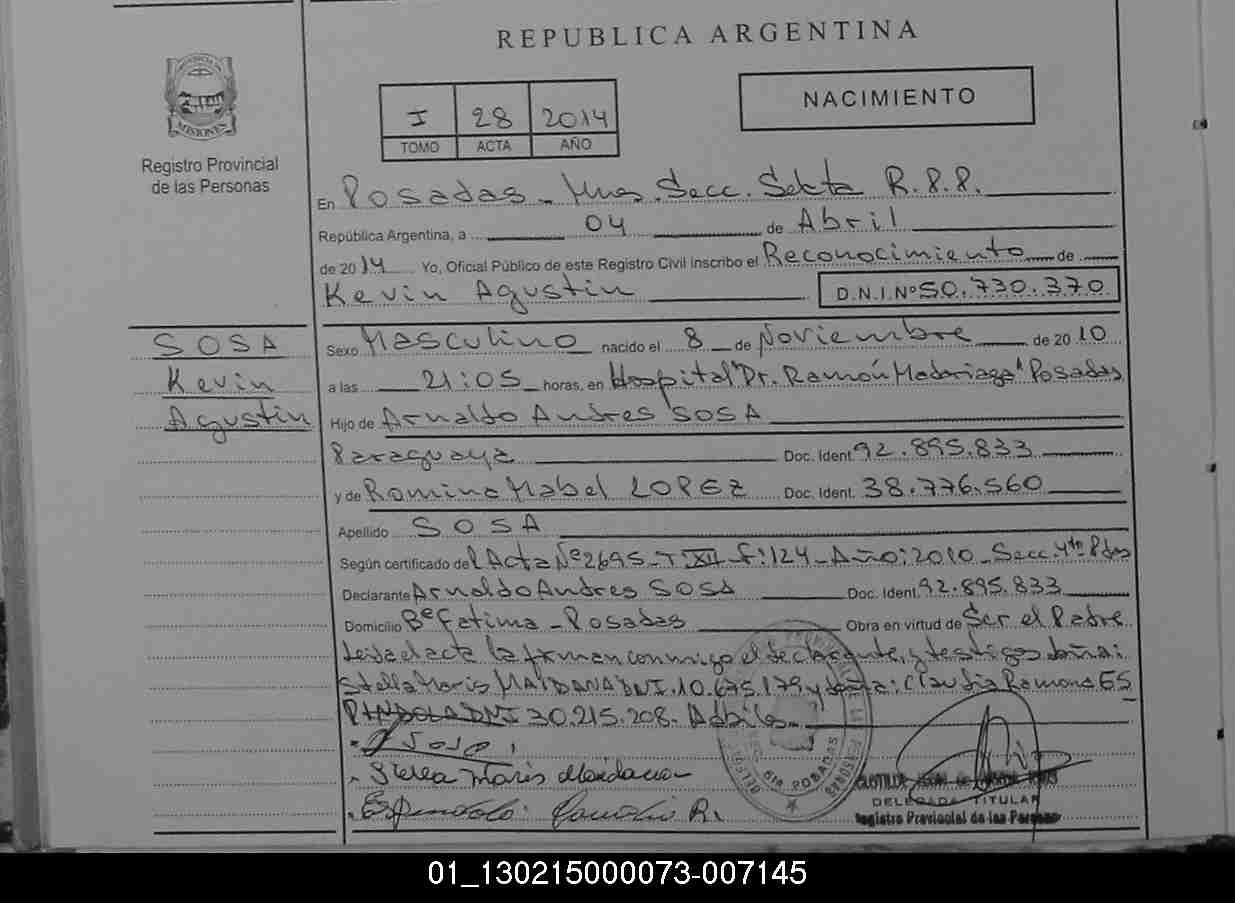 REPUBLICA ARGENTINA
PROVINCIA DE
MISIONES
Registro Provincial
de las Personas
I 28 2014
TOMO ACTA AÑO
NACIMIENTO
En Posadas - Mnes. Secc. Sekta R.P.P.
República Argentina, a 04 de Abril
de 2014 Yo, Oficial Público de este Registro Civil inscribo el Reconocimiento de
Kevin Agustin D.N.I. Nº 50.730.370
SOSA
Kevin
Agustin
Sexo Masculino nacido el 8 de Noviembre de 2010
a las 21:05 horas, en Hospital "Dr. Ramón Madariaga" Posadas
Hijo de Arnaldo Andres SOSA
Paraguaya Doc. Ident. 92.895.833
y de Romina Mabel LOPEZ Doc. Ident. 38.776.560
Apellido SOSA
Según certificado del Acta Nº 2695 - T XII - F: 124 - Año: 2010 - Secc. 4ta Pdas
Declarante Arnaldo Andres SOSA Doc. Ident. 92.895.833
Domicilio Bº Fatima - Posadas Obra en virtud de Ser el Padre
Leida el acta la firman conmigo el declarante, y testigos doña:
Stella Maris MAIDANA DNI. 10.675.179 y doña: Claudia Ramona ES
PINDOLA DNI 30.215.208.
Sosa
Stella Maris Maidana
Espindola R.
POSADAS
DELEGADA TITULAR
Registro Provincial de las Personas
01_130215000073-007145